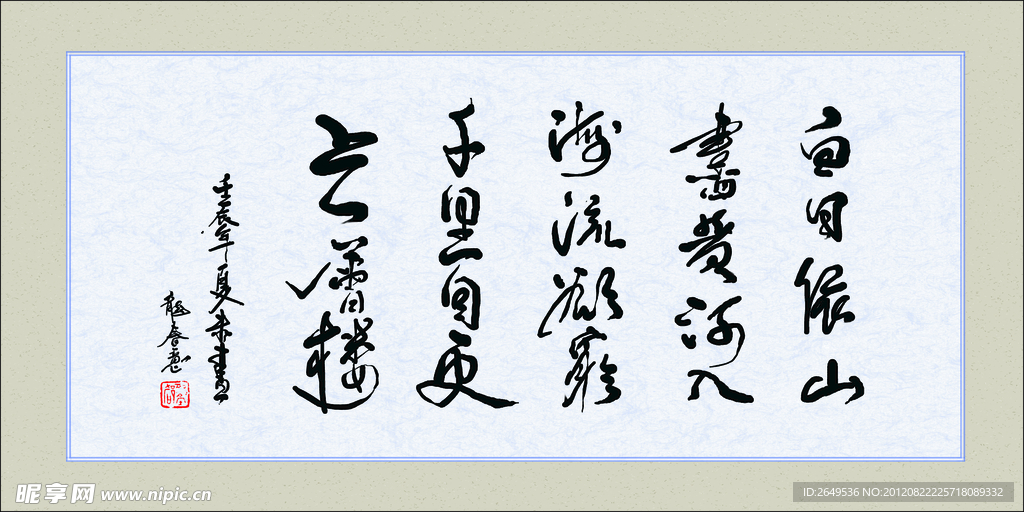 白日依山
盡黃河入
海流欲窮
千里目更
上一層樓
壬辰年夏末書
昵享网 www.nipic.cn
ID:2649536 NO:20120822225718089332